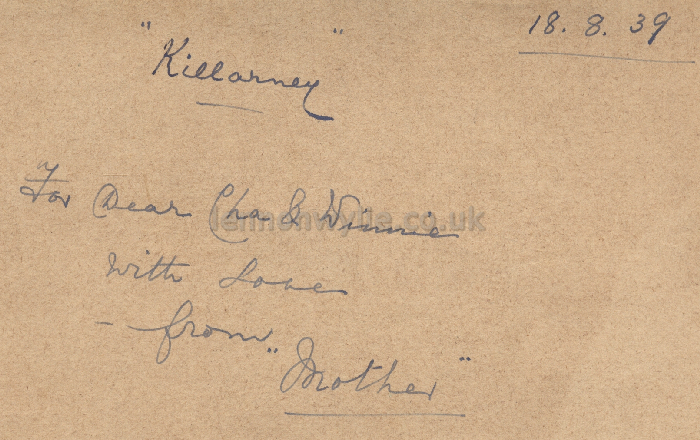 18. 8. 39
"Killarney"
For Dear Cha & Winnie
lennonwylie.co.uk
With Love
- from
"Mother"